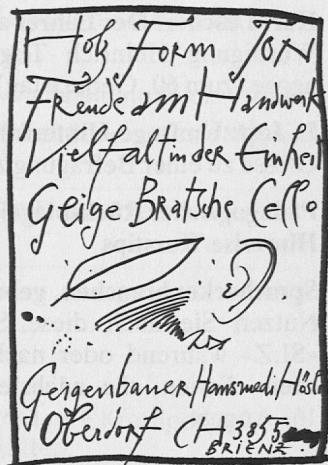 Holz Form Ton
Freude am Handwerk
Vielfalt in der Einheit
Geige Bratsche Cello
Geigenbauer/Hansruedi/Hösli
Oberdorf CH 3855
BRIENZ